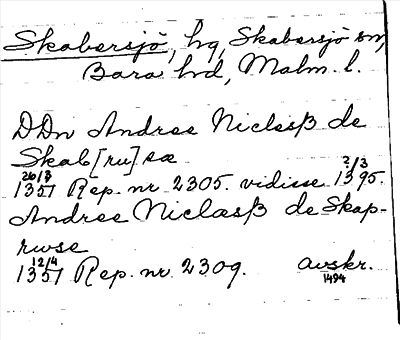 Skabersjö, hg, Skabersjö sn,
Bara hd, Malm. l.
DDn Andree Niclesß de
Skab[ru]sæ
26/3 1357 Rep. nr 2305. vidisse ?/3 1395.
Andree Niclæsß de Skap-
rwse
12/4 1357 Rep. nr 2309. avskr. 1494